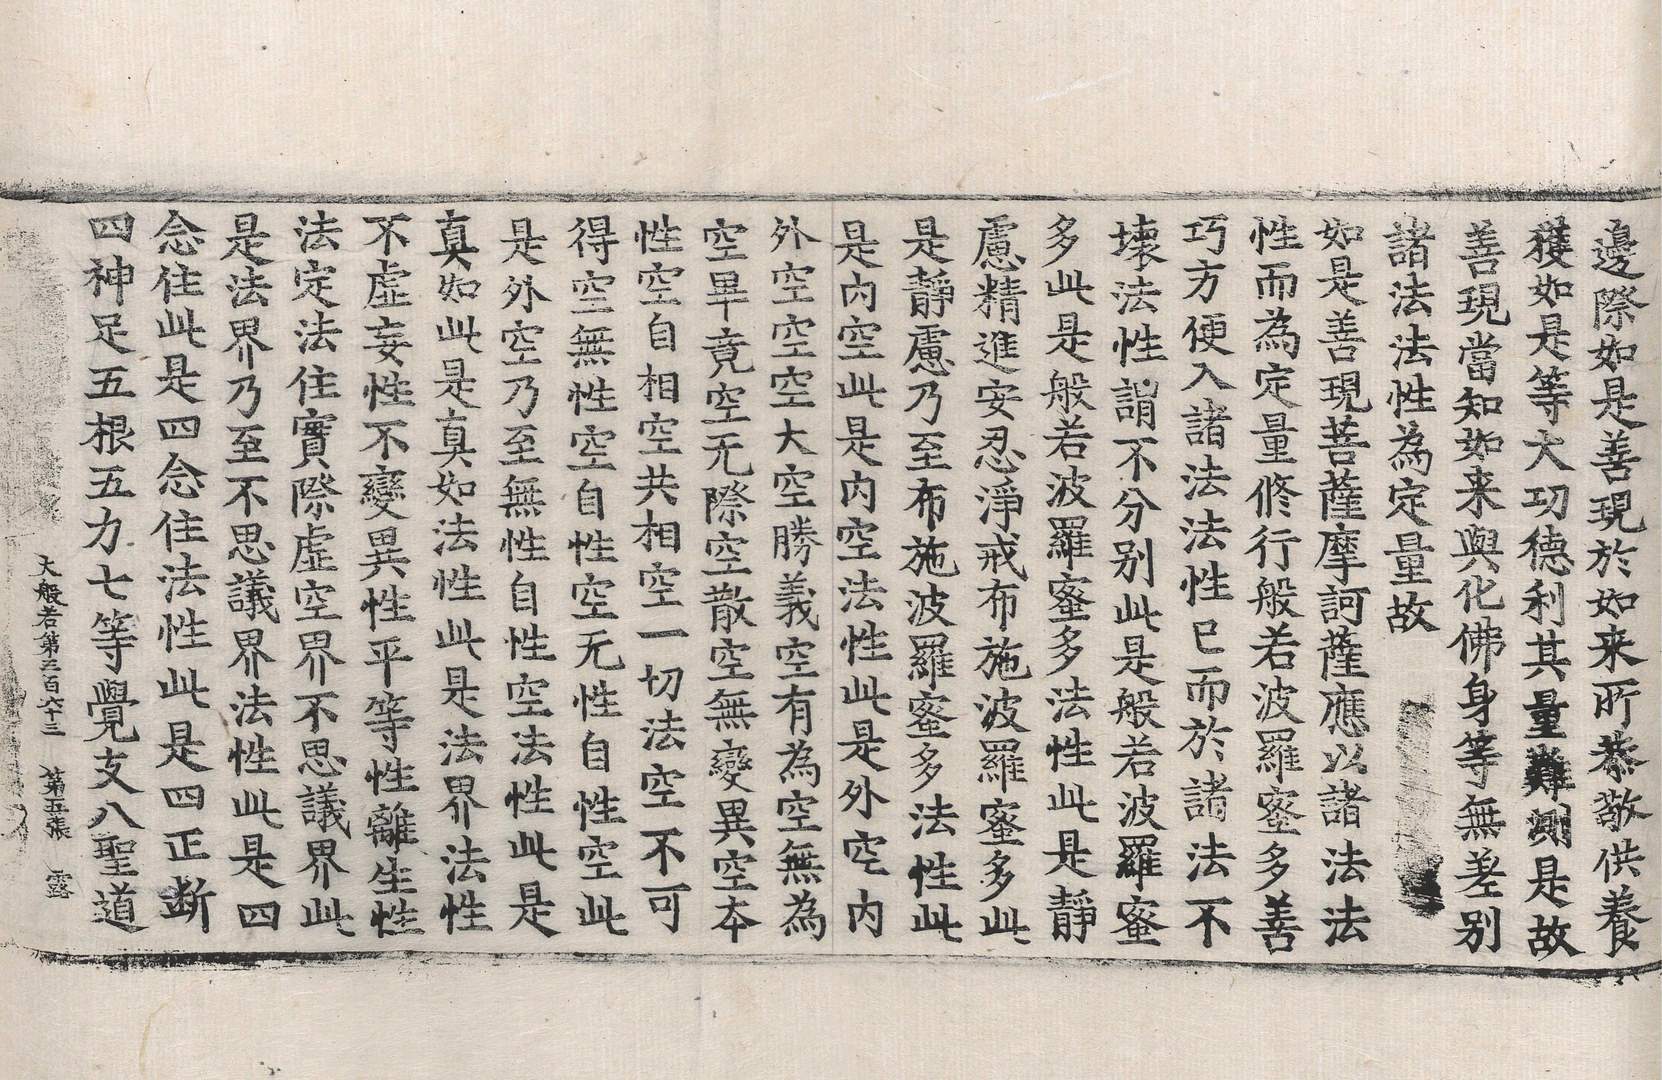 邊際如是善現於如来所恭敬供養
獲如是等大功德利其量難測是故
善現當知如来與化佛身等無差别
諸法法性為定量故
如是善現菩薩摩訶薩應以諸法法
性而為定量修行般若波羅蜜多善
巧方便入諸法法性已而於諸法不
壊法性謂不分别此是般若波羅蜜
多此是般若波羅蜜多法性此是靜
慮精進安忍淨戒布施波羅蜜多此
是靜慮乃至布施波羅蜜多法性此
是内空此是内空法性此是外空内
外空空空大空勝義空有為空無為
空畢竟空无際空散空無變異空本
性空自相空共相空一切法空不可
得空無性空自性空无性自性空此
是外空乃至無性自性空法性此是
真如此是真如法性此是法界法性
不虛妄性不變異性平等性離生性
法定法住實際虛空界不思議界此
是法界乃至不思議界法性此是四
念住此是四念住法性此是四正断
四神足五根五力七等覺支八聖道
大般若第三百六十三 第五張 露